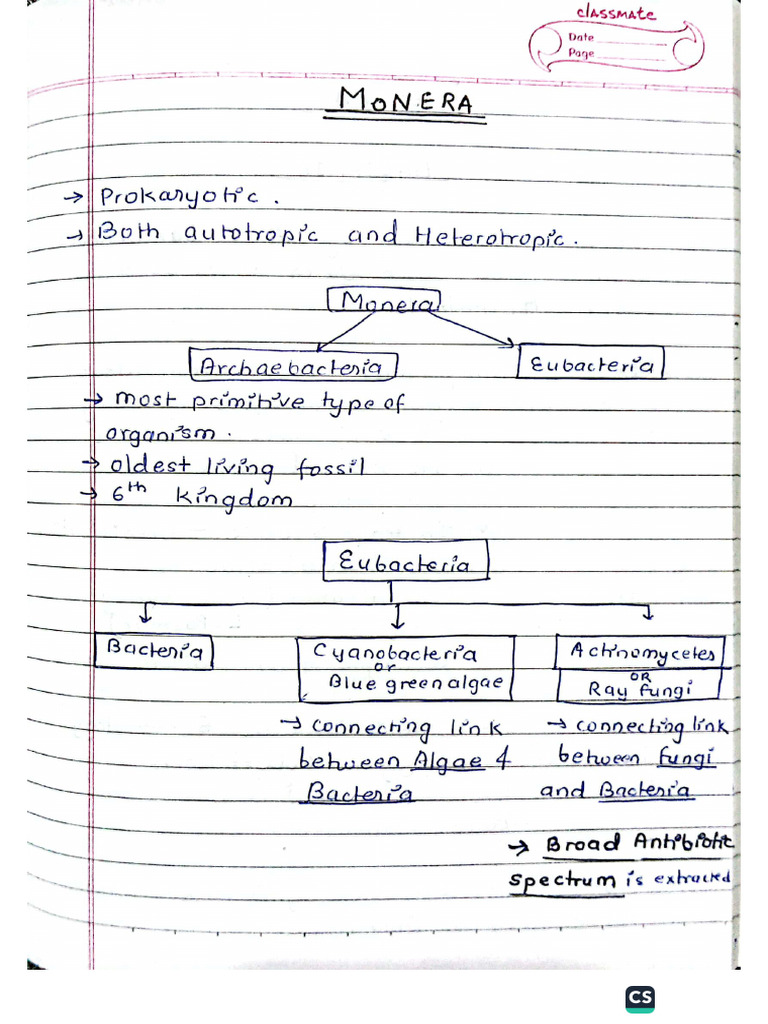 classmate
Date
Page
MONERA
→ Prokaryotic.
→ Both autotropic and Heterotropic.
Monera
Archaebacteria
Eubacteria
→ most primitive type of
organism.
→ oldest living fossil
→ 6th kingdom
Eubacteria
Bacteria
Cyanobacteria
or
Blue green algae
Actinomycetes
OR
Ray fungi
→ connecting link
between Algae &
Bacteria
→ connecting link
between fungi
and Bacteria
→ Broad Antibiotic
spectrum is extracted
CS